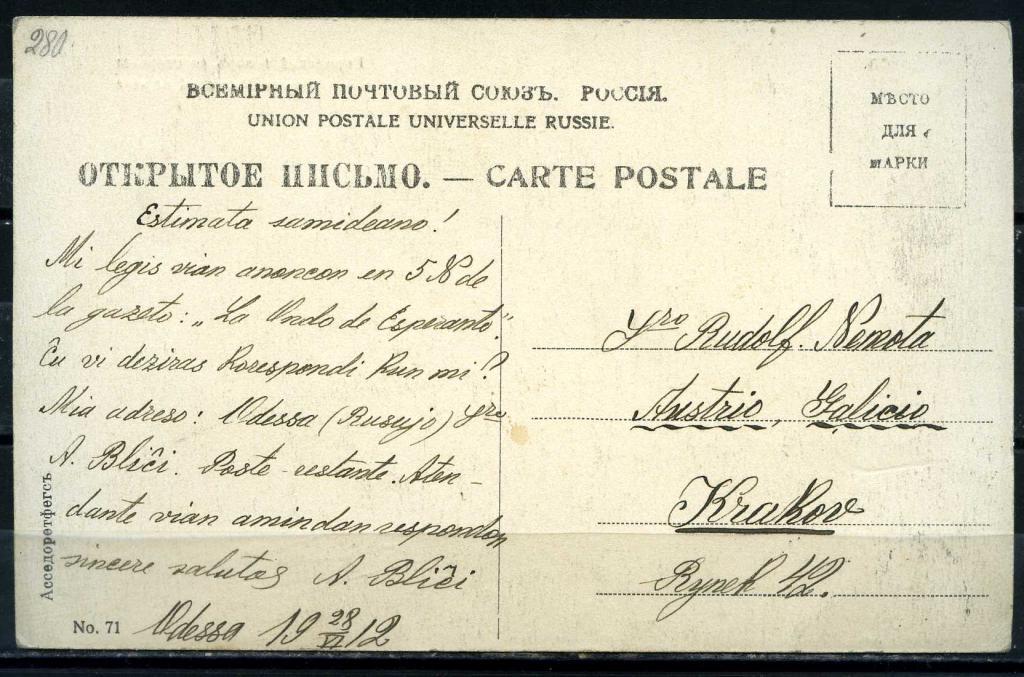 280
ВСЕМІРНЫЙ ПОЧТОВЫЙ СОЮЗЪ. РОССІЯ.
UNION POSTALE UNIVERSELLE RUSSIE.
ОТКРЫТОЕ ПИСЬМО. — CARTE POSTALE
МѢСТО
ДЛЯ
МАРКИ
Estimata samideano!
Mi legis vian anoncon en 5 № de
la gazeto: „La Ondo de Esperanto."
Ĉu vi deziras korespondi kun mi?
Mia adreso: Odessa (Rusujo) Sro
A. Bliĉi. Poste-restante. Aten-
dante vian amindan respondon
sincere salutas A. Bliĉi
Odessa 19 28/VI 12
Sro Rudolf. Nemota
Austrio, Galicio
Krakov
Rynek 42.
Асседоретфегсъ
No. 71